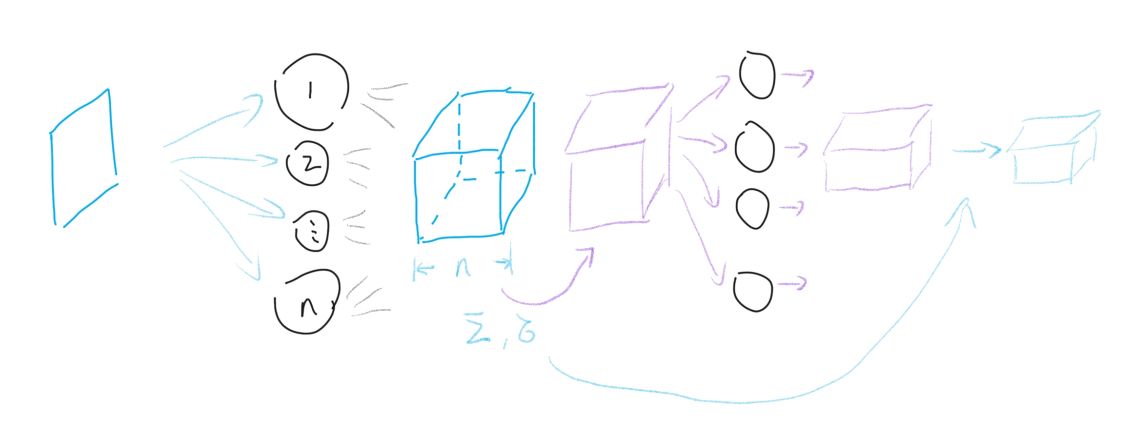 1
2
⋮
n
n
Σ, σ